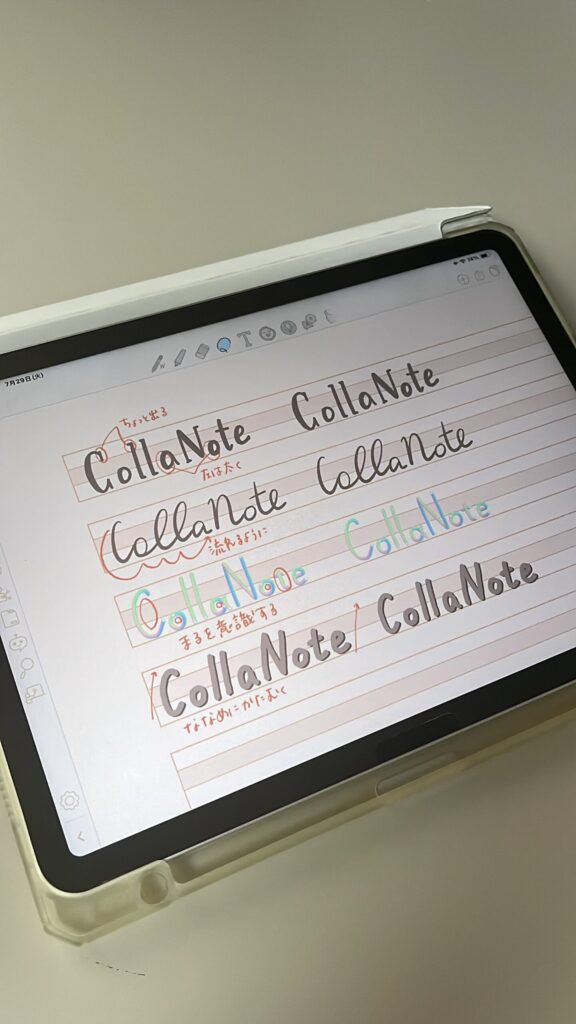 7月29日(火)
74%
T
ちょっと出る
CollaNote CollaNote
太く
CollaNote CollaNote
流れるように
CollaNote CollaNote
まるを意識する
CollaNote CollaNote
ななめにかたむく